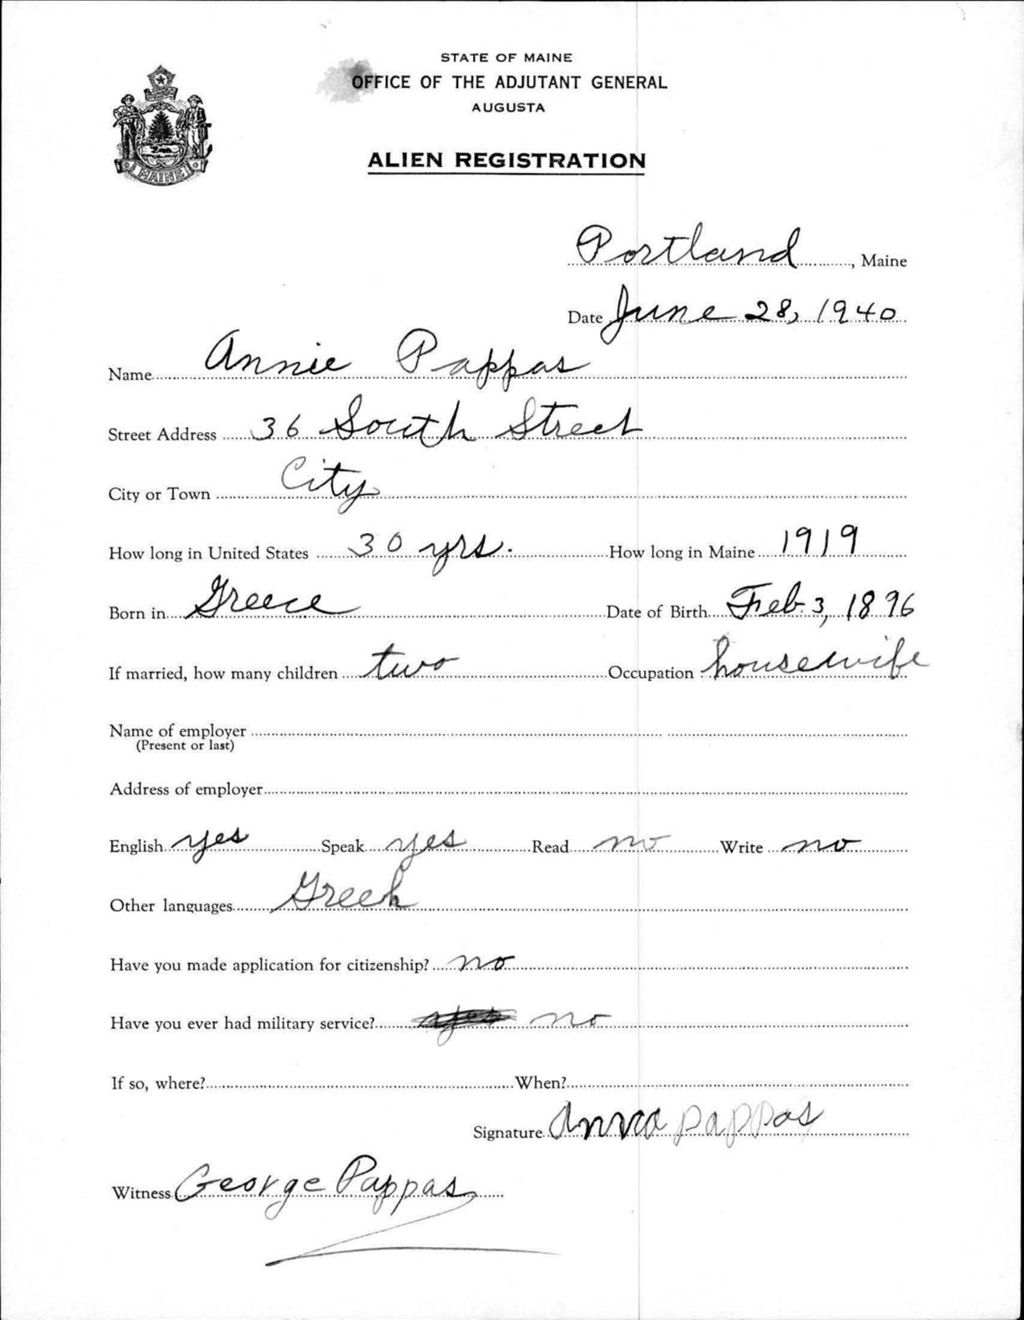 STATE OF MAINE
OFFICE OF THE ADJUTANT GENERAL
AUGUSTA
ALIEN REGISTRATION
MAINE
Portland, Maine
Date June 28, 1940
Name Annie Pappas
Street Address 36 South Street
City or Town City
How long in United States 30 yrs. How long in Maine 1919
Born in Greece Date of Birth Feb. 3, 1896
If married, how many children two Occupation housewife
Name of employer
(Present or last)
Address of employer
English yes Speak yes Read no Write no
Other languages Greek
Have you made application for citizenship? no
Have you ever had military service? yes no
If so, where? When?
Signature Anna Pappas
Witness George Pappas